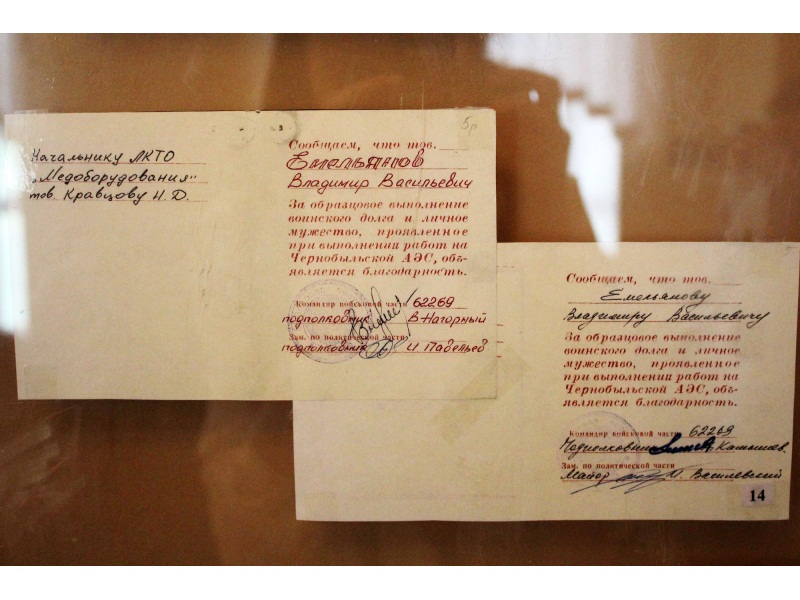 Начальнику ЛКТО
"Медоборудования"
тов. Кравцову Н. Д.
5р
Сообщаем, что тов.
Емельянов
Владимир Васильевич
За образцовое выполнение
воинского долга и личное
мужество, проявленное
при выполнения работ на
Чернобыльской АЭС, объ-
является благодарность.
Командир войсковой части 62269
подполковник В. Нагорный
Зам. по политической части
подполковник И. Падельев
Сообщаем, что тов.
Емельянову
Владимиру Васильевичу
За образцовое выполнение
воинского долга и личное
мужество, проявленное
при выполнения работ на
Чернобыльской АЭС, объ-
является благодарность.
Командир войсковой части 62269
Подполковник Камышев.
Зам. по политической части
Майор Василевский
14